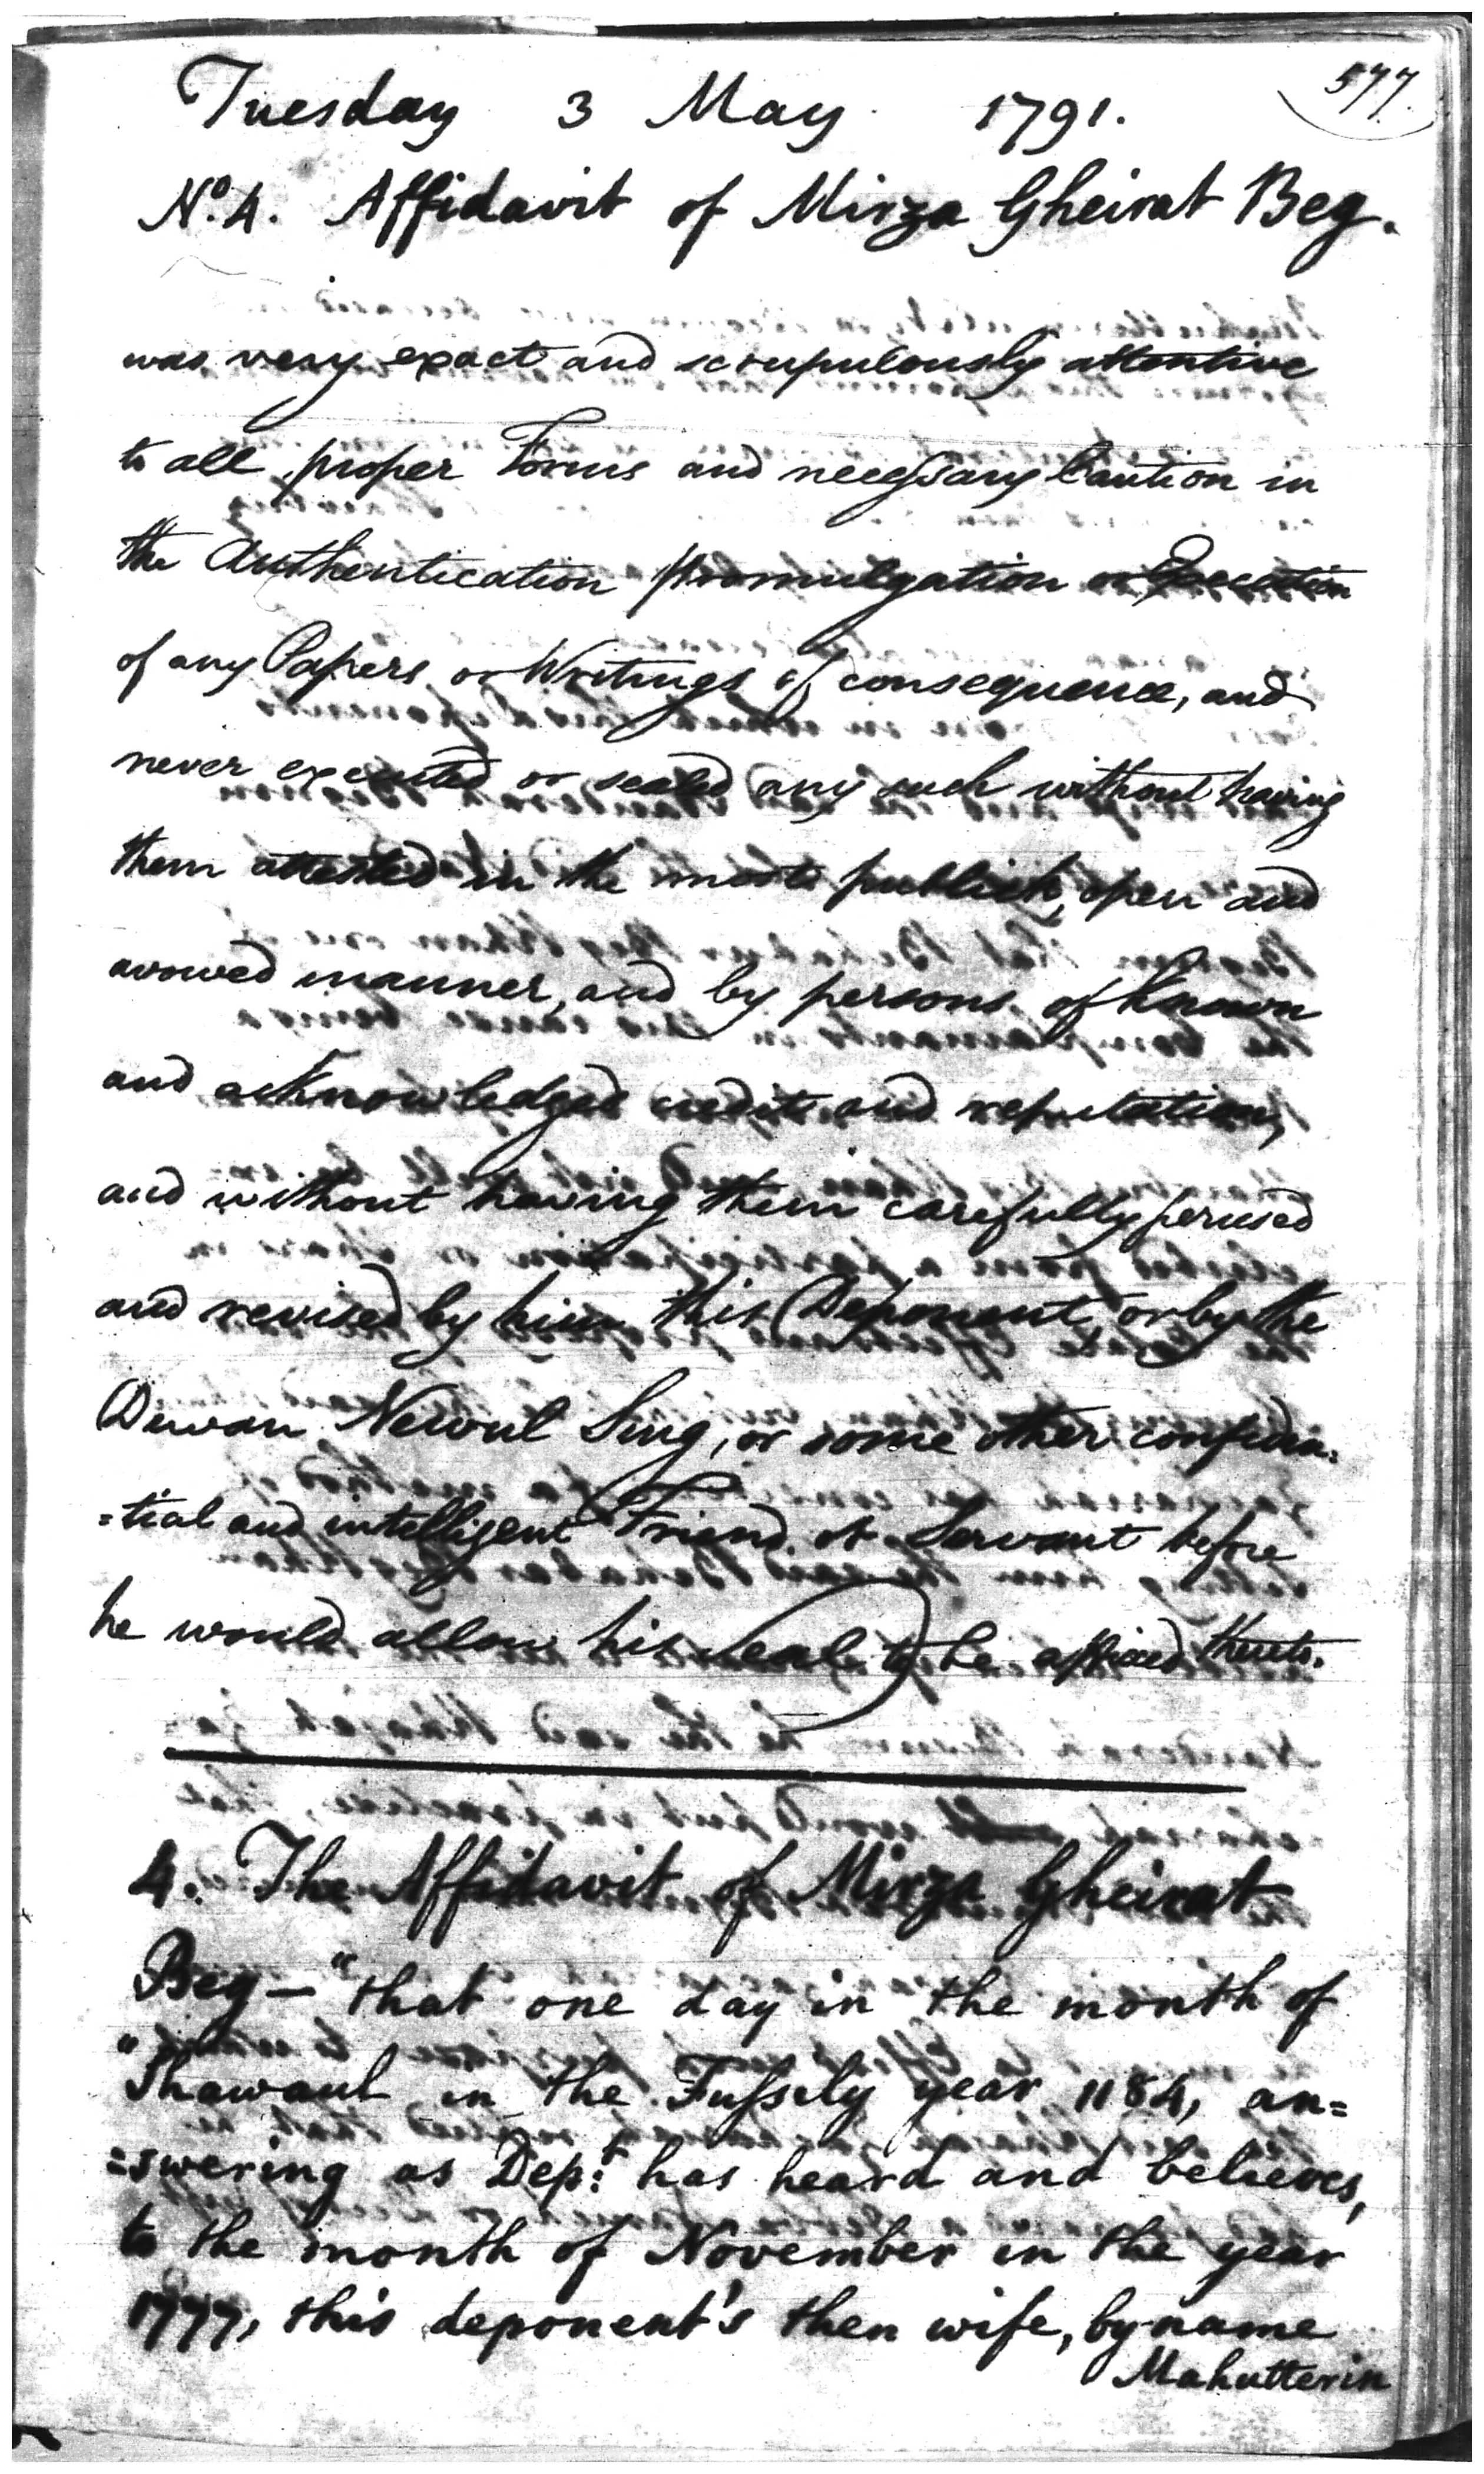 577.
Tuesday 3 May. 1791.
No. 4. Affidavit of Mirza Gheirat Beg.
was very exact and scrupulously attentive
to all proper Forms and necessary Caution in
the Authentication promulgation or Execution
of any Papers or Writings of consequence, and
never executed or sealed any such without having
them attested in the most publick, open and
avowed manner, and by persons of known
and acknowledged credit and reputation,
and without having them carefully perused
and revised by him this Deponent, or by the
Duwan Newul Sing, or some other confiden=
=tial and intelligent Friend or Servant before
he would allow his Seal to be affixed thereto.
4. The Affidavit of Mirza Gheirat
Beg — "that one day in the month of
"Shawaul in the Fussily year 1184, an=
=swering as Dep:t has heard and believes,
to the month of November in the year
1777, this deponent's then wife, by name
Mahutterin